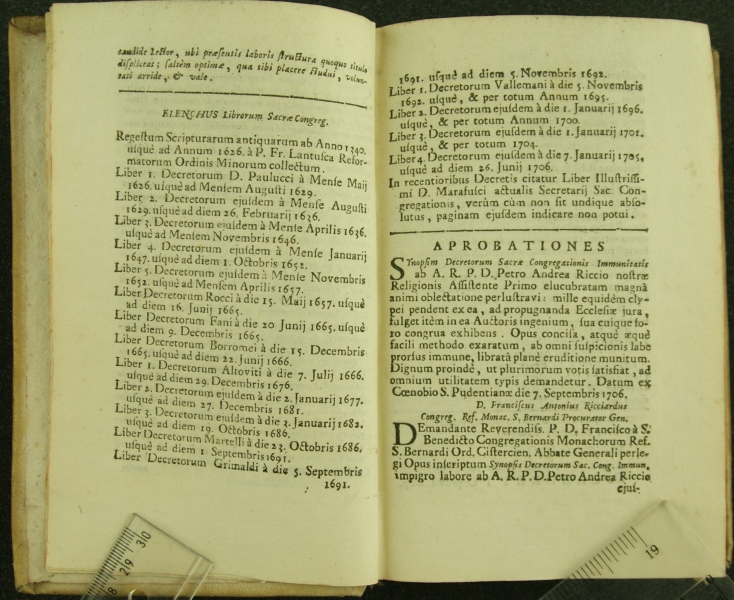 candide Lector, ubi præsentis laboris structura quoquo titulo
displiceat; saltèm optimæ, qua tibi placere studui, volun-
tati arride, & vale.
ELENCHUS Librorum Sacræ Congreg.
Regestum Scripturarum antiquarum ab Anno 1340.
usquè ad Annum 1626. à P. Fr. Lantusca Refor-
matorum Ordinis Minorum collectum.
Liber 1. Decretorum D. Paulucci à Mense Maij
1626. usquè ad Mensem Augusti 1629.
Liber 2. Decretorum ejusdem à Mense Augusti
1629. usquè ad diem 26. Februarij 1636.
Liber 3. Decretorum ejusdem à Mense Aprilis 1636.
usquè ad Mensem Novembris 1646.
Liber 4. Decretorum ejusdem à Mense Januarij
1647. usquè ad diem 1. Octobris 1652.
Liber 5. Decretorum ejusdem à Mense Novembris
1652. usquè ad Mensem Aprilis 1657.
Liber Decretorum Rocci à die 15. Maij 1657. usquè
ad diem 16. Junij 1665.
Liber Decretorum Fani à die 20. Junij 1665. usquè
ad diem 9. Decembris 1665.
Liber Decretorum Borromei à die 15. Decembris
1665. usquè ad diem 22. Junij 1666.
Liber 1. Decretorum Altoviti à die 7. Julij 1666.
usquè ad diem 29. Decembris 1676.
Liber 2. Decretorum ejusdem à die 2. Januarij 1677.
usquè ad diem 27. Decembris 1681.
Liber 3. Decretorum ejusdem à die 3. Januarij 1682.
usquè ad diem 19. Octobris 1686.
Liber Decretorum Martelli à die 23. Octobris 1686.
usquè ad diem 1. Septembris 1691.
Liber Decretorum Grimaldi à die 5. Septembris
1691.
1691. usquè ad diem 5. Novembris 1692.
Liber 1. Decretorum Vallemani à die 5. Novembris
1692. usquè, & per totum Annum 1695.
Liber 2. Decretorum ejusdem à die 1. Januarij 1696.
usquè, & per totum Annum 1700.
Liber 3. Decretorum ejusdem à die 1. Januarij 1701.
usquè, & per totum 1704.
Liber 4. Decretorum ejusdem à die 7. Januarij 1705.
usquè ad diem 26. Junij 1706.
In recentioribus Decretis citatur Liber Illustrissi-
mi D. Marafusci actualis Secretarij Sac. Con-
gregationis, verùm cùm non sit undique abso-
lutus, paginam ejusdem indicare non potui.
APROBATIONES
SYnopsim Decretorum Sacræ Congregationis Immunitatis
ab A. R. P. D. Petro Andrea Riccio nostræ
Religionis Assistente Primo elucubratam magnâ
animi oblectatione perlustravi: mille equidèm cly-
pei pendent ex ea, ad propugnanda Ecclesiæ jura,
fulget itèm in ea Auctoris ingenium, sua cuique fo-
ro congrua exhibens. Opus concisa, atquè æquè
facili methodo exaratum, ab omni suspicionis labe
prorsùs immune, libratâ planè eruditione munitum.
Dignum proindè, ut plurimorum votis satisfiat, ad
omnium utilitatem typis demandetur. Datum ex
Cœnobio S. Pudentianæ die 7. Septembris 1706.
D. Franciscus Antonius Ricciardus
Congreg. Ref. Monac. S. Bernardi Procurator Gen.
DEmandante Reverendiss. P. D. Francisco à S.
Benedicto Congregationis Monachorum Ref.
S. Bernardi Ord. Cistercien. Abbate Generali perle-
gi Opus inscriptum Synopsis Decretorum Sac. Cong. Immun.
impigro labore ab A. R. P. D. Petro Andrea Riccio
ejus-
29 30
19